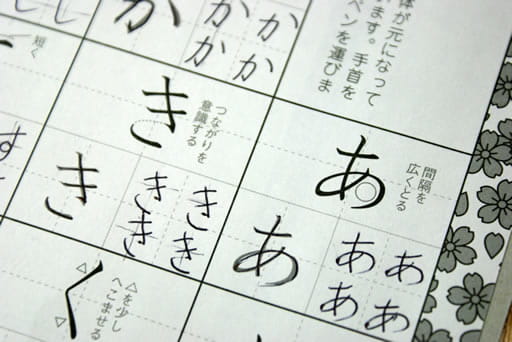 体が元になって
ます。手首を
ペンを運びま
あ
間隔を
広くとる
あ
ああ
ああ
かか
かか
き
つながりを
意識する
き
きき
きき
く
△を少し
へこませる
短く
す